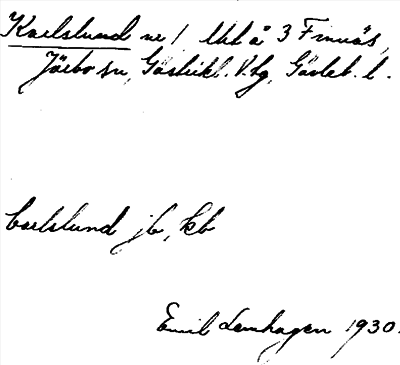 Karlslund nr 1 Utl å 3 Finnäs,
Järbo sn, Gästrikl. V. tg, Gävleb. l.
Carlslund jb, kb
Emil Lenhagen 1930.